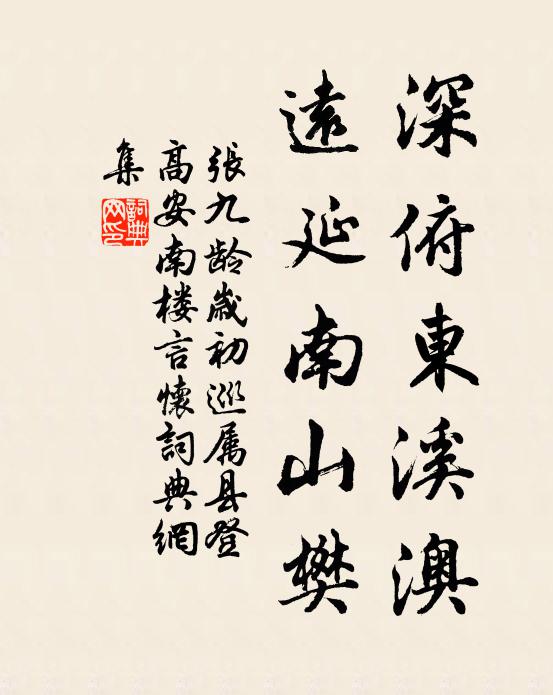 深俯東溪澳
遠延南山樊
張九龄歲初巡属县登
高安南楼言懷詞典網
集
詞典網印